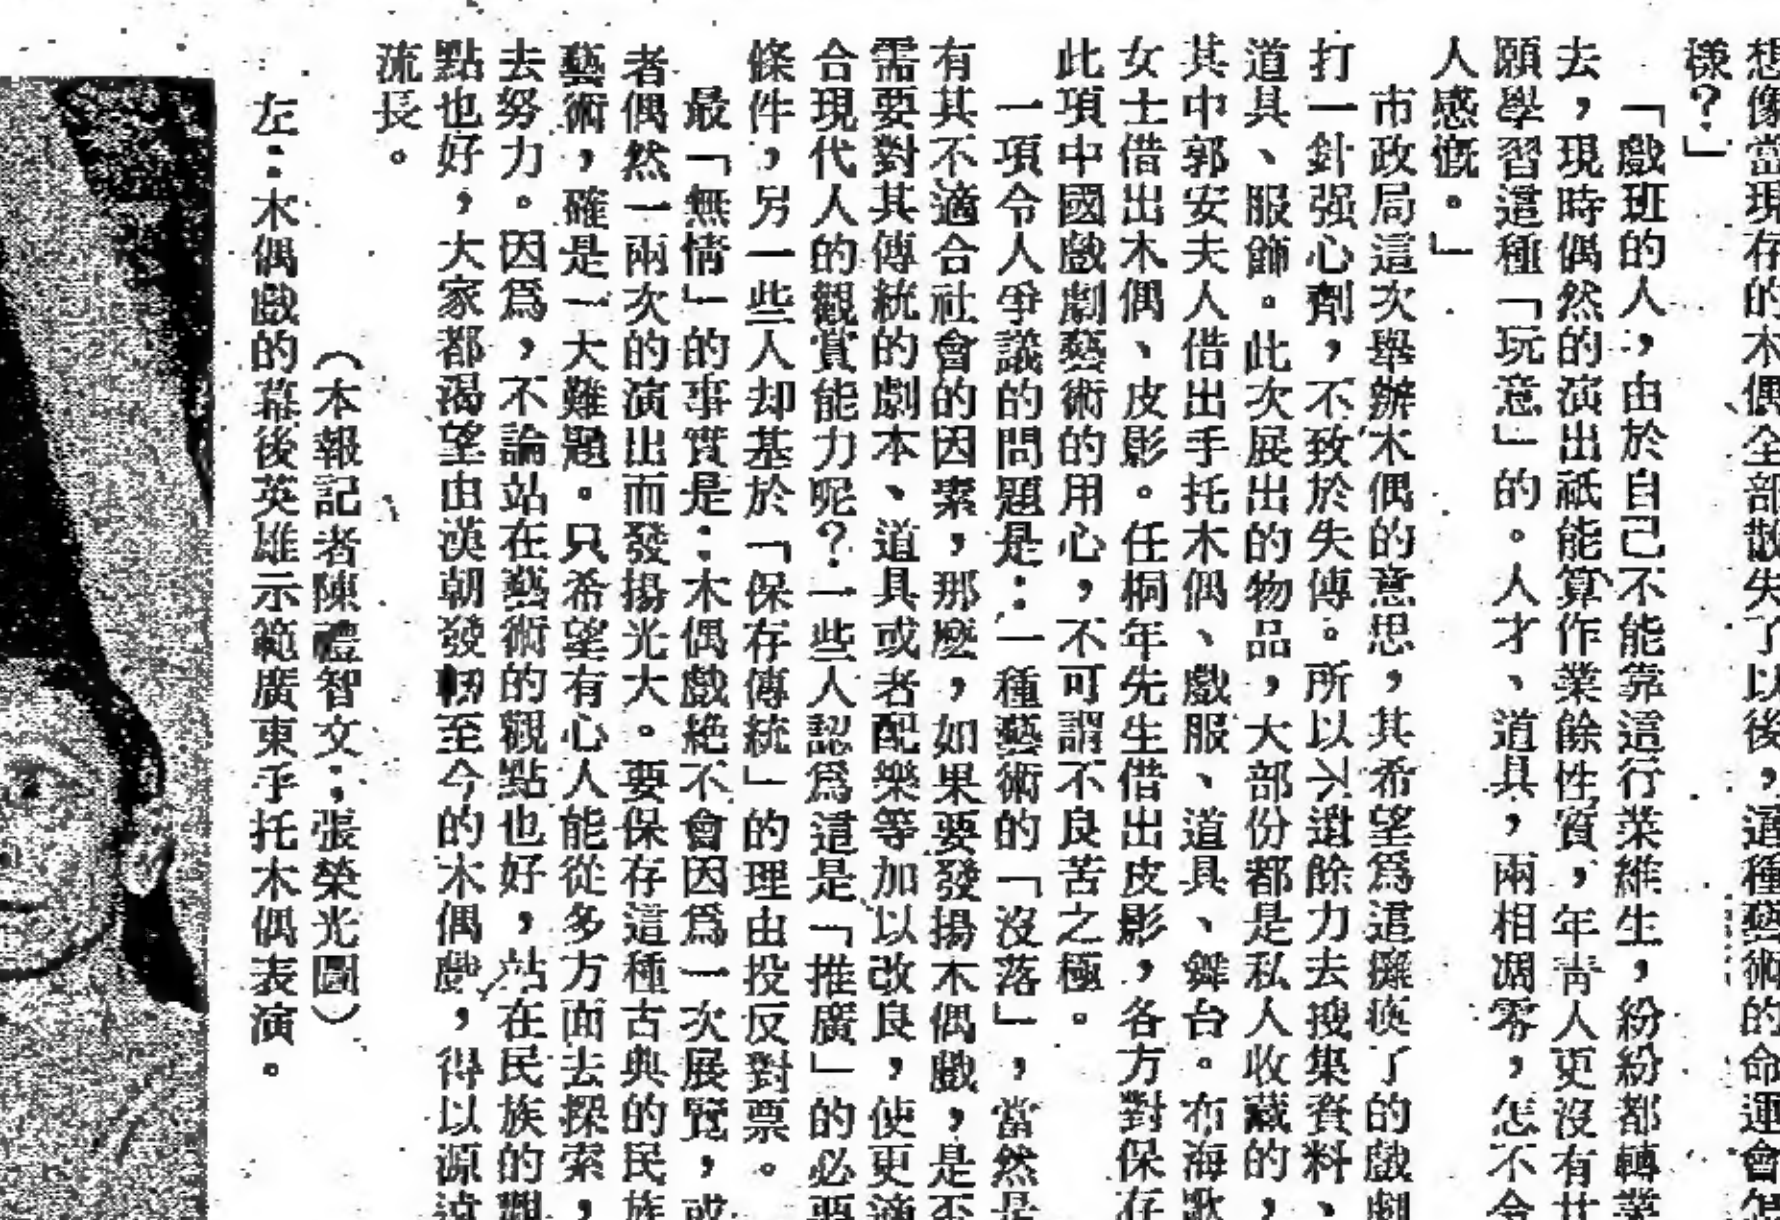 想像當現存的木偶全部散失了以後，這種藝術的命運會怎
樣？」
「戲班的人，由於自己不能靠這行業維生，紛紛都轉業
去，現時偶然的演出祇能算作業餘性質，年青人更沒有甘
願學習這種「玩意」的。人才、道具，兩相凋零，怎不令
人感慨。」
市政局這次舉辦木偶的意思，其希望爲這癱瘓了的戲劇
打一針强心劑，不致於失傳。所以不遺餘力去搜集資料、
道具、服飾。此次展出的物品，大部份都是私人收藏的，
其中郭安夫人借出手托木偶、戲服、道具、舞台。布海歌
女士借出木偶、皮影。任桐年先生借出皮影，各方對保存
此項中國戲劇藝術的用心，不可謂不良苦之極。
一項令人爭議的問題是：一種藝術的「沒落」，當然是
有其不適合社會的因素，那麽，如果要發揚木偶戲，是否
需要對其傳統的劇本、道具或者配樂等加以改良，使更適
合現代人的觀賞能力呢？一些人認爲這是「推廣」的必要
條件，另一些人却基於「保存傳統」的理由投反對票。
最「無情」的事實是：木偶戲絕不會因爲一次展覽，或
者偶然一兩次的演出而發揚光大。要保存這種古典的民族
藝術，確是一大難題。只希望有心人能從多方面去探索，
去努力。因爲，不論站在藝術的觀點也好，站在民族的觀
點也好，大家都渴望由漢朝發軔至今的木偶戲，得以源遠
流長。
（本報記者陳禮智文；張榮光圖）
左：木偶戲的幕後英雄示範廣東手托木偶表演。